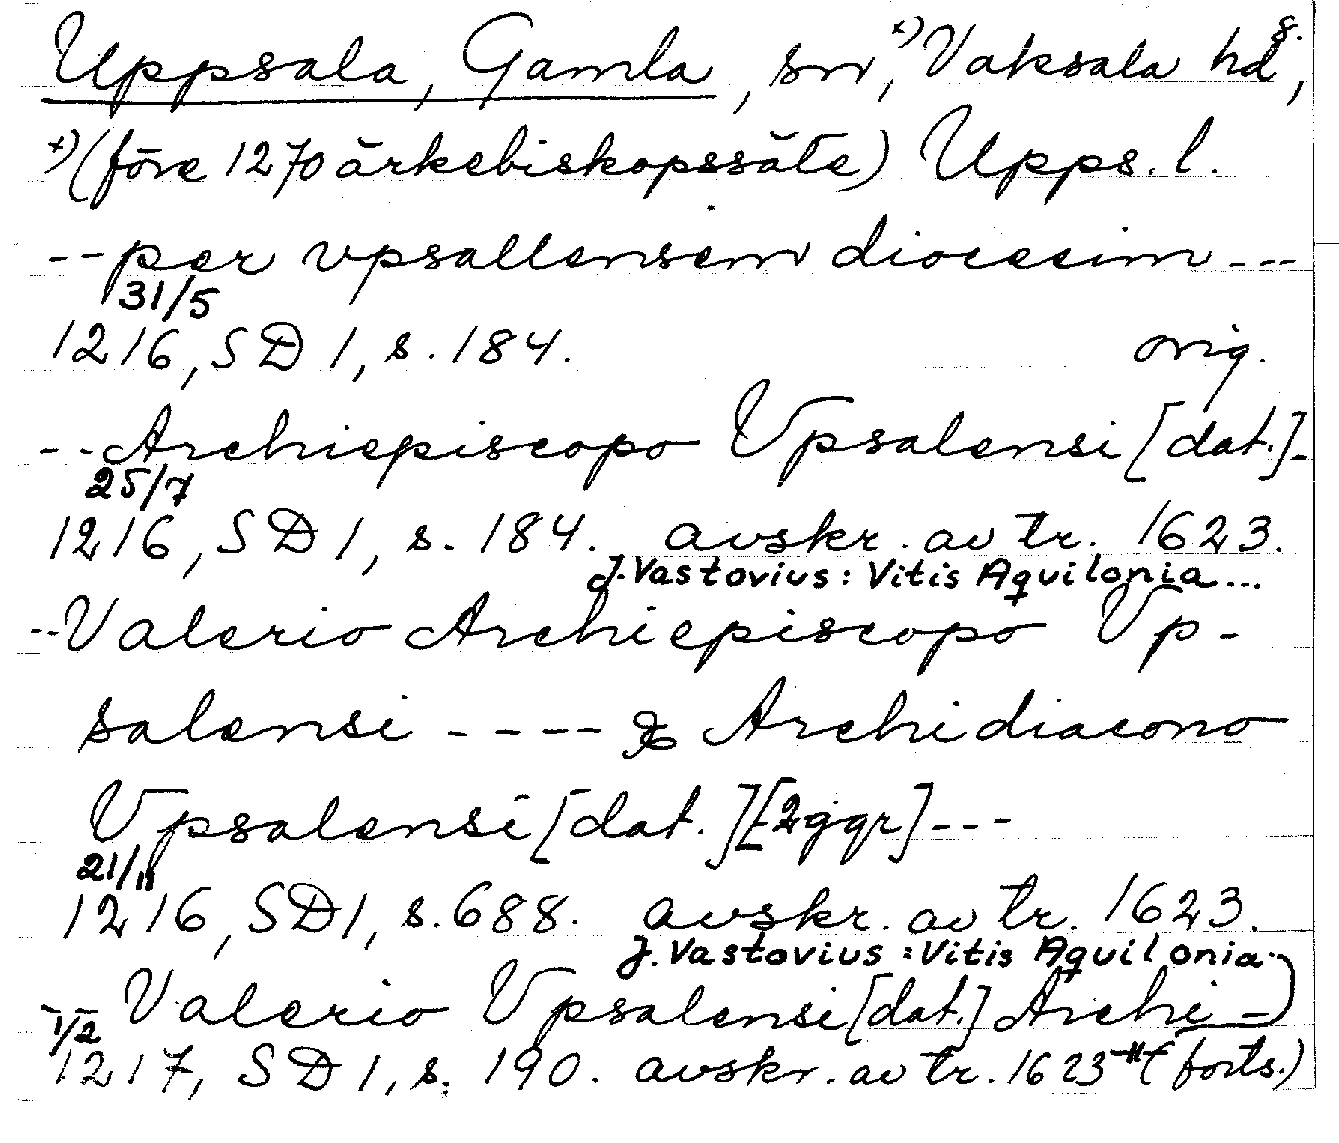 Uppsala, Gamla, sn,x) Vaksala hd s.,
x) (före 1270 ärkebiskopssäte) Upps. l.
-- per vpsallensem diocecim ---
31/5
1216, SD 1, s. 184. orig.
-- Archiepiscopo Vpsalensi [dat.]-
25/7
1216, SD 1, s. 184. avskr. av tr. 1623.
J. Vastovius: Vitis Aquilonia...
-- Valerio Archiepiscopo Vp-
salensi ---- & Archidiacono
Vpsalensi [dat.] [2 ggr] ---
21/11
1216, SD 1, s. 688. avskr. av tr. 1623.
J. Vastovius: Vitis Aquilonia.
-- Valerio Vpsalensi [dat.] Archi-)
1/2
1217, SD 1, s. 190. avskr. av tr. 1623 -"- (forts.)